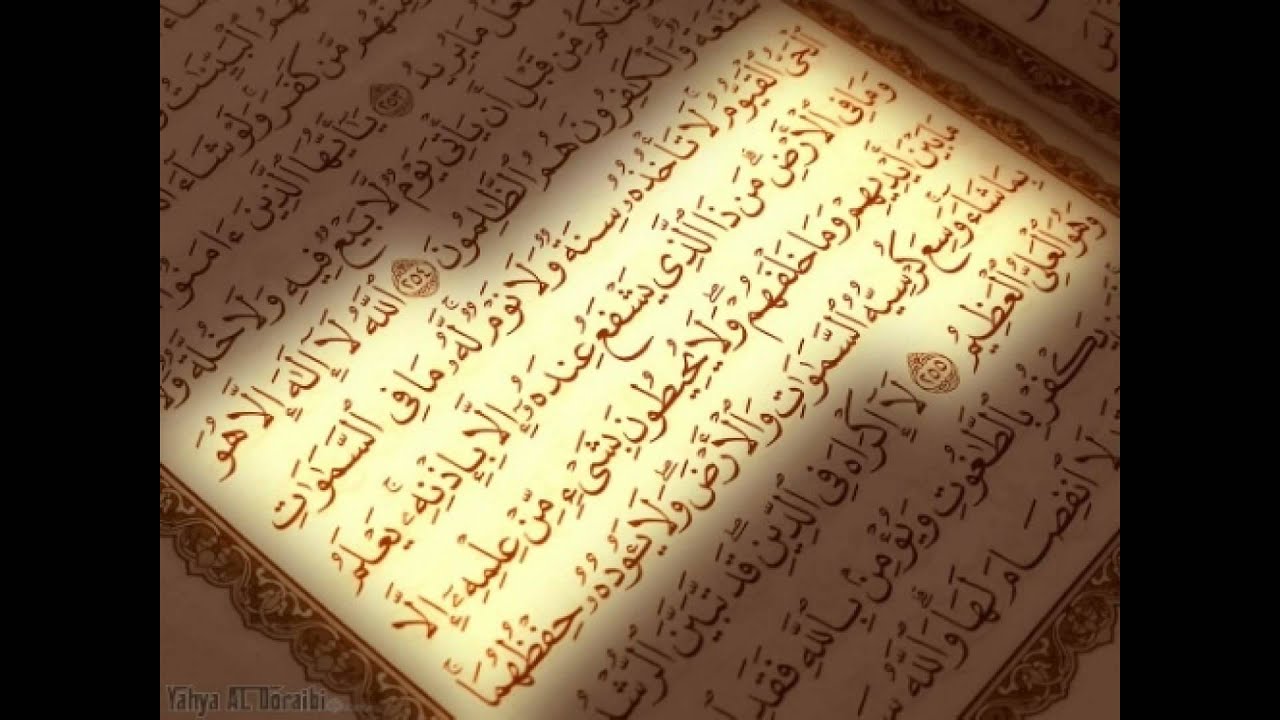 ٱلْبَيِّنَٰتُ
مِنْهُم مَّن كَفَرَ وَلَوْ شَآءَ
مَا يُرِيدُ ٢٥٣ يَٰٓأَيُّهَا ٱلَّذِينَ ءَامَنُوٓا۟
مِّن قَبْلِ أَن يَأْتِىَ يَوْمٌ لَّا بَيْعٌ فِيهِ وَلَا خُلَّةٌ وَلَا
شَفَٰعَةٌ وَٱلْكَٰفِرُونَ هُمُ ٱلظَّٰلِمُونَ ٢٥٤ ٱللَّهُ لَآ إِلَٰهَ إِلَّا هُوَ
ٱلْحَىُّ ٱلْقَيُّومُ لَا تَأْخُذُهُۥ سِنَةٌ وَلَا نَوْمٌ لَّهُۥ مَا فِى ٱلسَّمَٰوَٰتِ
وَمَا فِى ٱلْأَرْضِ مَن ذَا ٱلَّذِى يَشْفَعُ عِندَهُۥٓ إِلَّا بِإِذْنِهِۦ يَعْلَمُ
مَا بَيْنَ أَيْدِيهِمْ وَمَا خَلْفَهُمْ وَلَا يُحِيطُونَ بِشَىْءٍ مِّنْ عِلْمِهِۦٓ إِلَّا
بِمَا شَآءَ وَسِعَ كُرْسِيُّهُ ٱلسَّمَٰوَٰتِ وَٱلْأَرْضَ وَلَا يَـُٔودُهُۥ حِفْظُهُمَا
وَهُوَ ٱلْعَلِىُّ ٱلْعَظِيمُ ٢٥٥ لَآ إِكْرَاهَ فِى ٱلدِّينِ قَد تَّبَيَّنَ ٱلرُّشْدُ
يَكْفُرْ بِٱلطَّٰغُوتِ وَيُؤْمِنۢ بِٱللَّهِ فَقَدِ
لَا ٱنفِصَامَ لَهَا وَٱللَّهُ
Yahya AL Doraibi